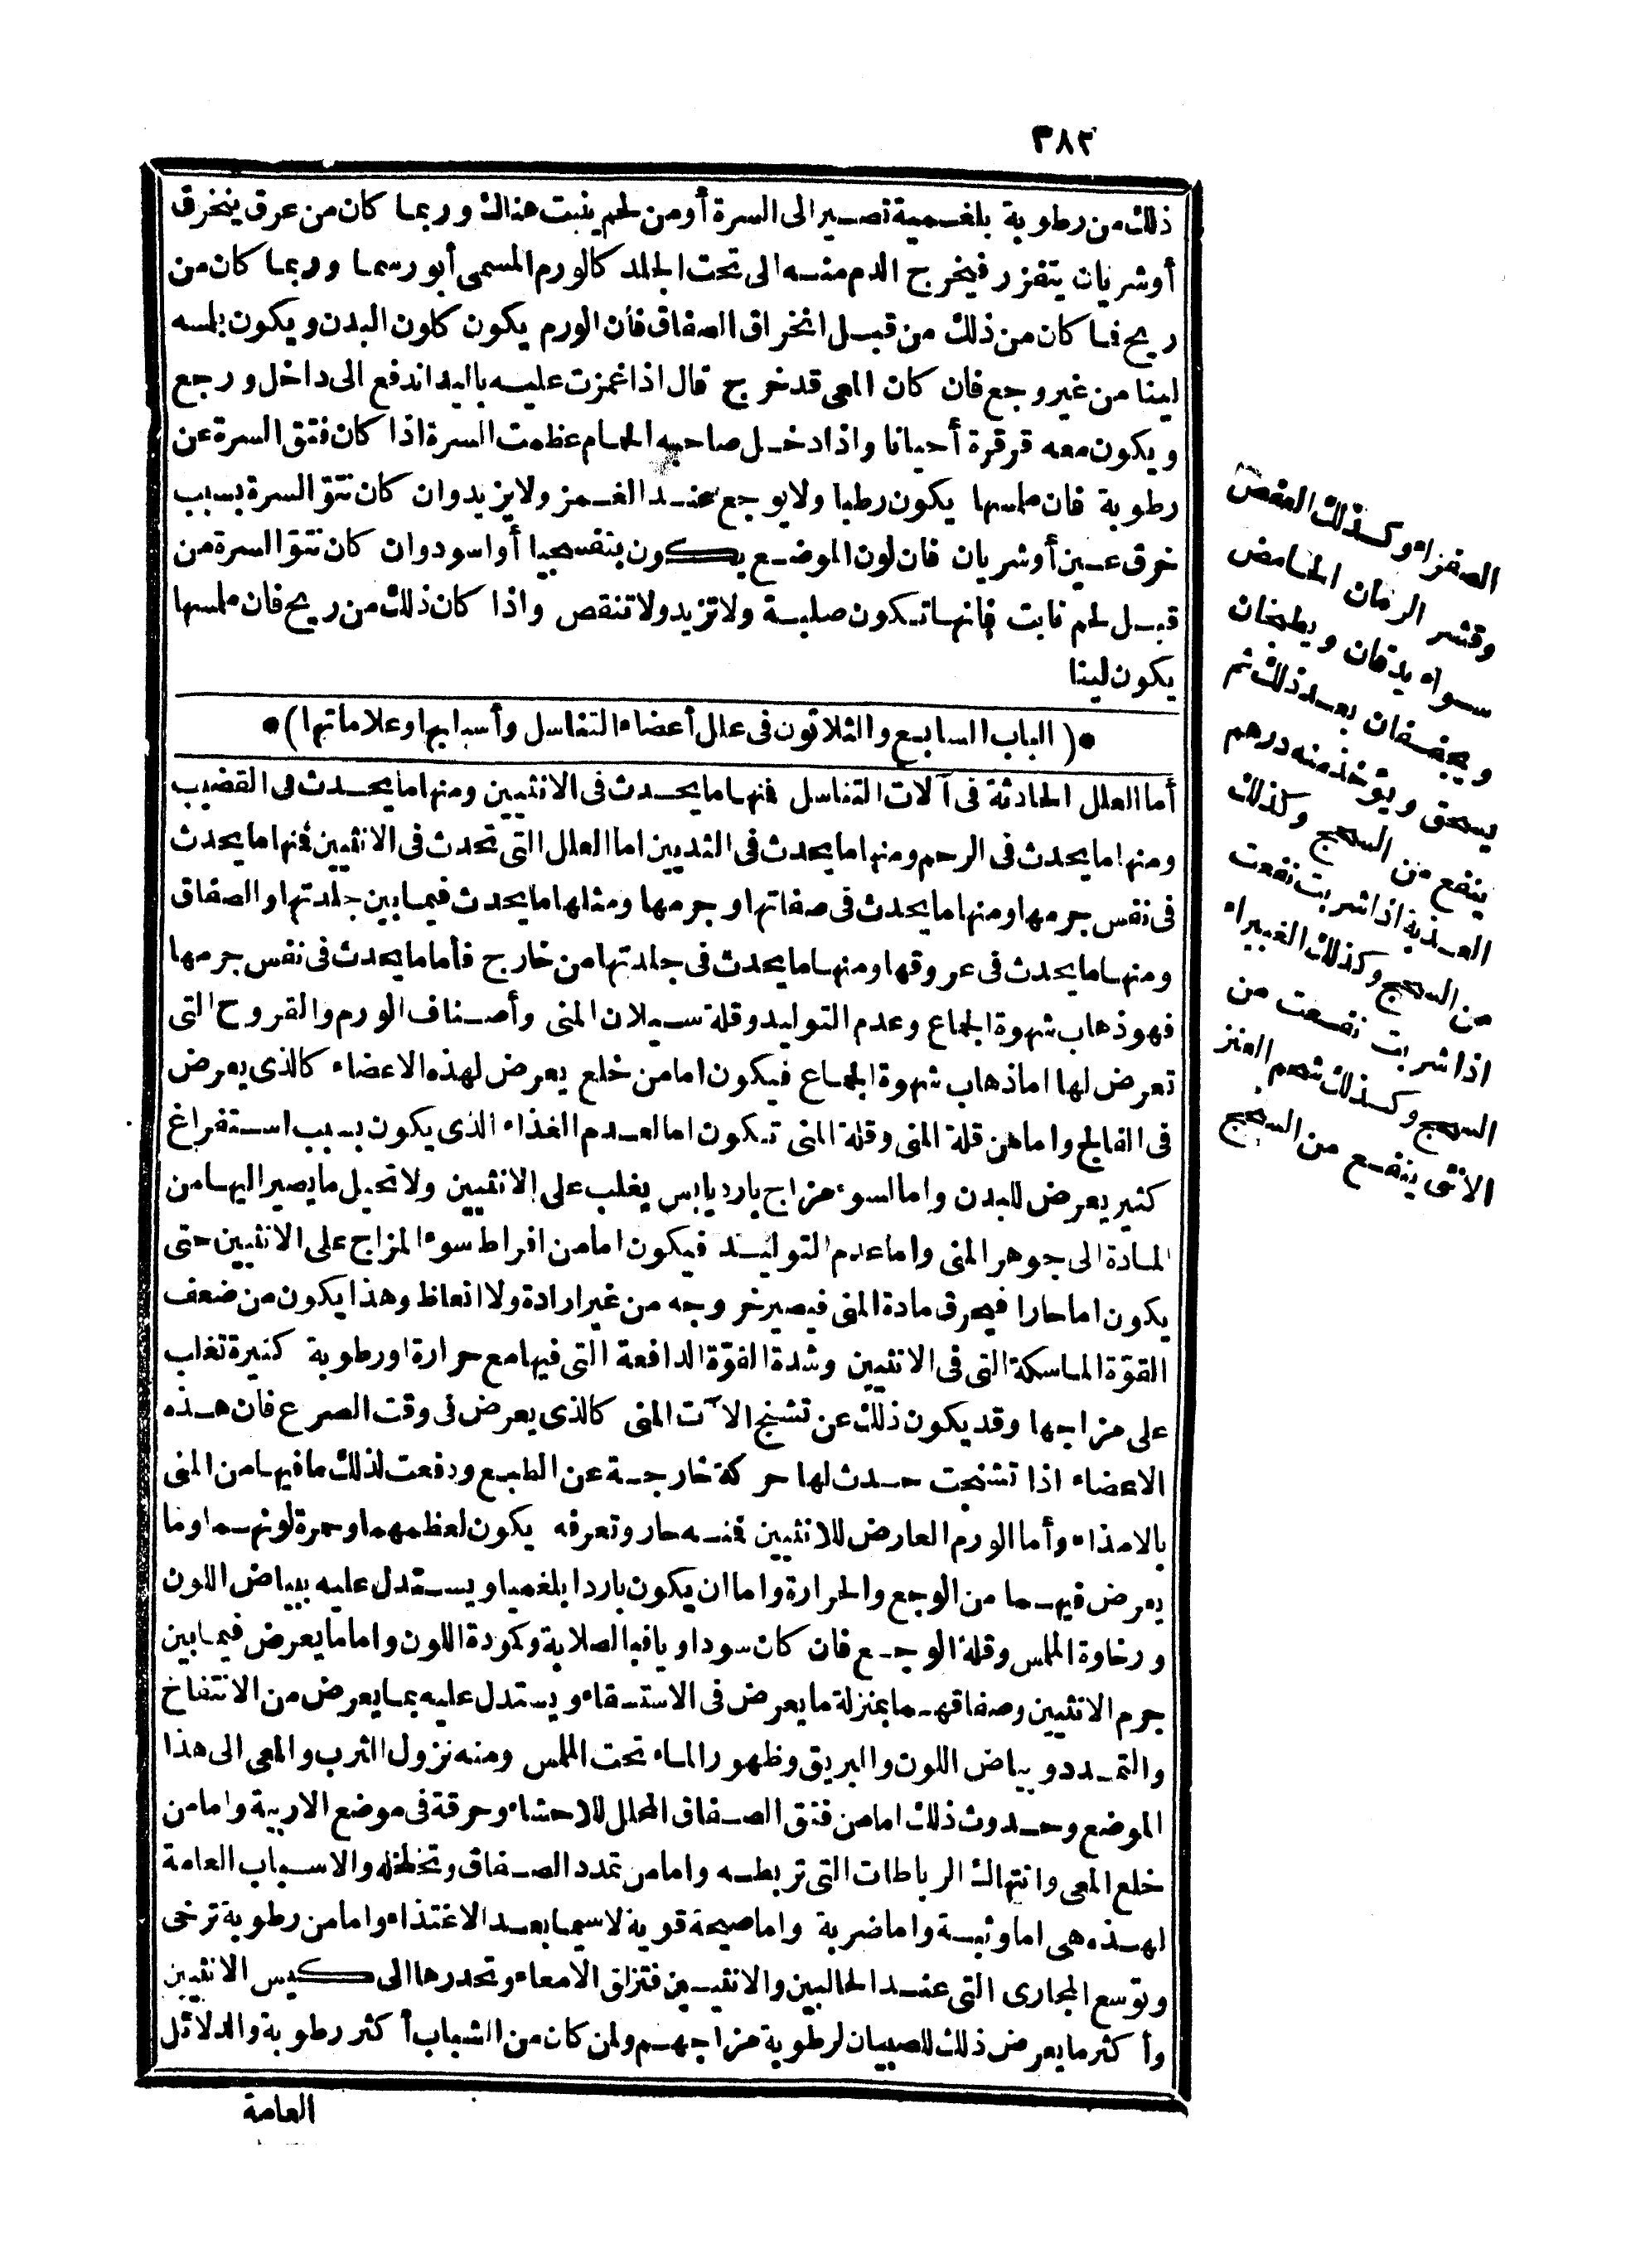 ٣٨٢
ذلك من رطوبة بلغمية تصير الى السرة أو من لحم ينبت هناك وربما كان من عرق ينخرق
أو شريان يتفزر فيخرج الدم منه الى تحت الجلد كالورم المسمى أبورسما وربما كان من
ريح فما كان من ذلك من قبل انخراق الصفاق فان الورم يكون كلون البدن ويكون بلمسه
لينا من غير وجع فان كان المعى قد خرج قال اذا غمزت عليه باليد اندفع الى داخل ورجع
ويكون معه قرقرة أحيانا واذا دخل صاحبه الحمام عظمت السرة اذا كان فتق السرة عن
رطوبة فان ملمسها يكون رطبا ولا يوجع عند الغمز ولا يزيد وان كان نتوّ السرة بسبب
خرق عين أو شريان فان لون الموضع يكون بنفسجيا أو اسود وان كان نتوّ السرة من
قبل لحم نابت فانها تكون صلبة ولا تزيد ولا تنقص واذا كان ذلك من ريح فان ملمسها
يكون لينا
*(الباب السابع والثلاثون فى علل أعضاء التناسل وأسبابها وعلاماتها)*
أما العلل الحادثة فى آلات التناسل فمنها ما يحدث فى الانثيين ومنها ما يحدث فى القضيب
ومنها ما يحدث فى الرحم ومنها ما يحدث فى الثديين اما العلل التى تحدث فى الانثيين فمنها ما يحدث
فى نفس جرمها ومنها ما يحدث فى صفاتها وجرمها ومثلها ما يحدث فيما بين جلدتها والصفاق
ومنها ما يحدث فى عروقها ومنها ما يحدث فى جلدتها من خارج فأما ما يحدث فى نفس جرمها
فهو ذهاب شهوة الجماع وعدم التوليد وقلة سيلان المنى وأصناف الورم والقروح التى
تعرض لها اما ذهاب شهوة الجماع فيكون اما من خلع يعرض لهذه الاعضاء كالذى يعرض
فى الفالج واما من قلة المنى وقلة المنى تكون اما لعدم الغذاء الذى يكون بسبب استفراغ
كثير يعرض للبدن واما لسوء مزاج بارد يابس يغلب على الانثيين ولا تحيل ما يصير اليها من
المادة الى جوهر المنى واما عدم التوليد فيكون اما من افراط سوء المزاج على الانثيين حتى
يكون اما حارا فيحرق مادة المنى فيصير خروجه من غير ارادة ولا انعاظ وهذا يكون من ضعف
القوّة الماسكة التى فى الانثيين وشدة القوّة الدافعة التى فيها مع حرارة او رطوبة كثيرة تغلب
على مزاجها وقد يكون ذلك عن تشنج الآت المنى كالذى يعرض فى وقت الصرع فان هذه
الاعضاء اذا تشنجت حدث لها حركة خارجة عن الطبع ودفعت لذلك ما فيها من المنى
بالامذاء وأما الورم العارض للانثيين فمنه حار وتعرفه يكون لعظمهما وحمرة لونهما وما
يعرض فيهما من الوجع والحرارة واما ان يكون باردا بلغميا ويستدل عليه ببياض اللون
ورخاوة الملمس وقلة الوجع فان كان سوداويا فبالصلابة وكمودة اللون واما ما يعرض فيما بين
جرم الانثيين وصفاقهما بمنزلة ما يعرض فى الاستسقاء ويستدل عليه بما يعرض من الانتفاخ
والتمدد وبياض اللون والبريق وظهور الماء تحت الملمس ومنه نزول الثرب والمعى الى هذا
الموضع وحدوث ذلك اما من فتق الصفاق المحلل للاحشاء وحرقة فى موضع الاربية واما من
خلع المعى وانتهاك الرباطات التى تربطه واما من تمدد الصفاق وتخلخله والاسباب العامة
لهذه هى اما وثبة واما ضربة واما صيحة قوية لا سيما بعد الاغتذاء واما من رطوبة ترخى
وتوسع المجارى التى عند الحالبين والانثيين فتزلق الامعاء وتحدرها الى كيس الانثيين
وأكثر ما يعرض ذلك للصبيان لرطوبة مزاجهم ولمن كان من الشباب أكثر رطوبة والدلائل
العامة
الصفراء وكذلك العفص
وقشر الرمان الحامض
سواء يدقان ويطبخان
ويجففان بعد ذلك ثم
يسحق ويؤخذ منه درهم
ينفع من السحج وكذلك
العذبة اذا شربت نفعت
من السحج وكذلك الغبيراء
اذا شربت نفعت من
السحج وكذلك شحم العنز
الانثى ينفع من السحج